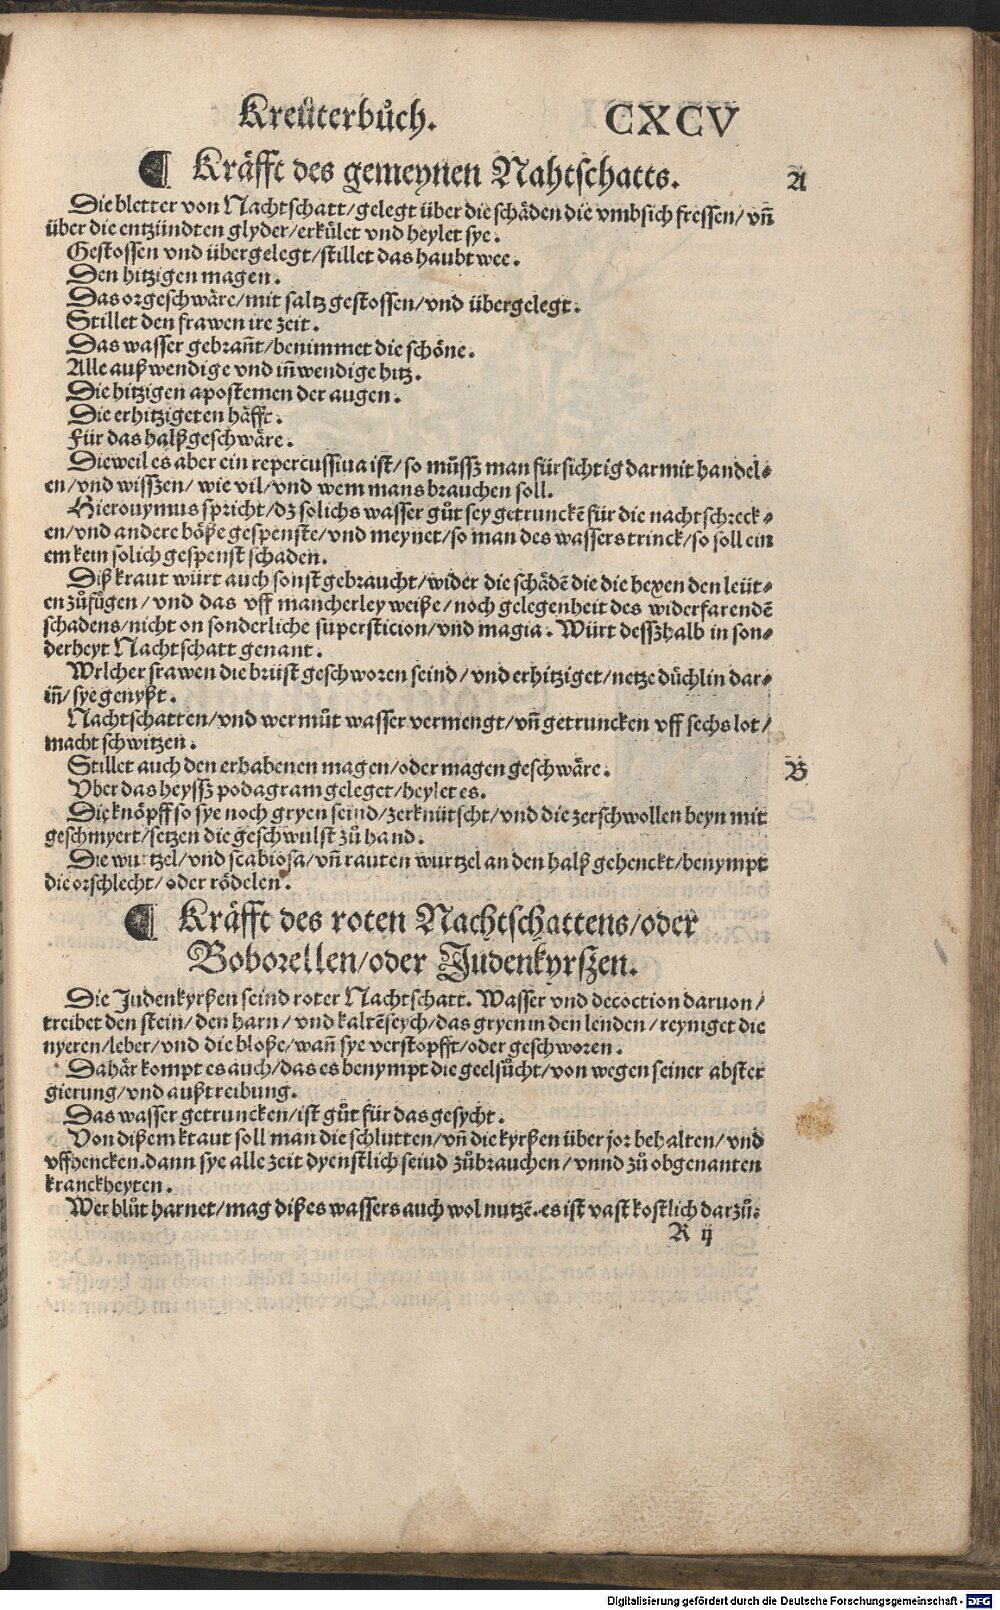 Kreüterbůch. CXCV
Kräfft des gemeynen Nahtschatts.
A
Die bletter von Nachtschatt/gelegt über die schäden die vmbsich fressen/vñ
über die entzündten glyder/erkůlet vnd heylet sye.
Gestossen vnd übergelegt/stillet das haubtwee.
Den hitzigen magen.
Das orgeschwäre/mit saltz gestossen/vnd übergelegt.
Stillet den frawen ire zeit.
Das wasser gebrañt/benimmet die schöne.
Alle außwendige vnd iñwendige hitz.
Die hitzigen apostemen der augen.
Die erhitzigeten häfft.
Für das halßgeschwäre.
Dieweil es aber ein repercussiua ist/so můssz man fürsichtig darmit handel⸗
en/vnd wisszen/wie vil/vnd wem mans brauchen soll.
Hieronymus spricht/dz solichs wasser gůt sey getrunckē für die nachtschreck⸗
en/vnd andere böße gespenste/vnd meynet/so man des wassers trinck/so soll ein
em kein solich gespenst schaden.
Diß kraut würt auch sonst gebraucht/wider die schädē die die hexen den leüt⸗
en zůfůgen/vnd das vff mancherley weiße/noch gelegenheit des widerfarendē
schadens/nicht on sonderliche supersticion/vnd magia. Würt dessßhalb in son⸗
derheyt Nachtschatt genant.
Welcher frawen die brüst geschworen seind/vnd erhitziget/netze důchlin dar⸗
iñ/sye genyßt.
Nachtschatten/vnd wermůt wasser vermengt/vñ getruncken vff sechs lot/
macht schwitzen.
Stillet auch den erhabenen magen/oder magen geschwäre.
B
Vber das heyssz podagram geleget/heylet es.
Die knöpff so sye noch gryen seind/zerknütscht/vnd die zerschwollen beyn mit
geschmyert/setzen die geschwulst zů hand.
Die wurtzel/vnd scabiosa/vñ rauten wurtzel an den halß gehenckt/benympt
die orschlecht/oder rödelen.
Kräfft des roten Nachtschattens/oder
Boborellen/oder Judenkyrszen.
Die Judenkyrßen seind roter Nachtschatt. Wasser vnd decoction daruon/
treibet den stein/den harn/vnd kaltēseych/das gryen in den lenden/reyniget die
nyeren/leber/vnd die bloße/wañ sye verstopfft/oder geschworen.
Dahär kompt es auch/das es benympt die geelsůcht/von wegen seiner abster
gierung/vnd außtreibung.
Das wasser getruncken/ist gůt für das gesycht.
Von dißem kraut soll man die schlutten/vñ die kyrßen über jor behalten/vnd
vffhencken.dann sye alle zeit dyenstlich seiud zůbrauchen/vnnd zů obgenanten
kranckheyten.
Wer blůt harnet/mag dißes wassers auch wol nutzē.es ist vast kostlich darzů.
R ij
Digitalisierung gefördert durch die Deutsche Forschungsgemeinschaft - DFG